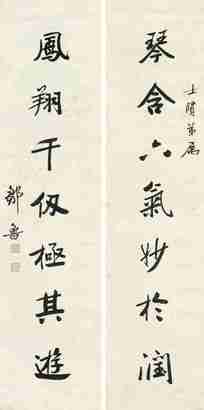 士弟屬
琴含六氣妙於潤
鳳翔千仭極其遊
鄒魯